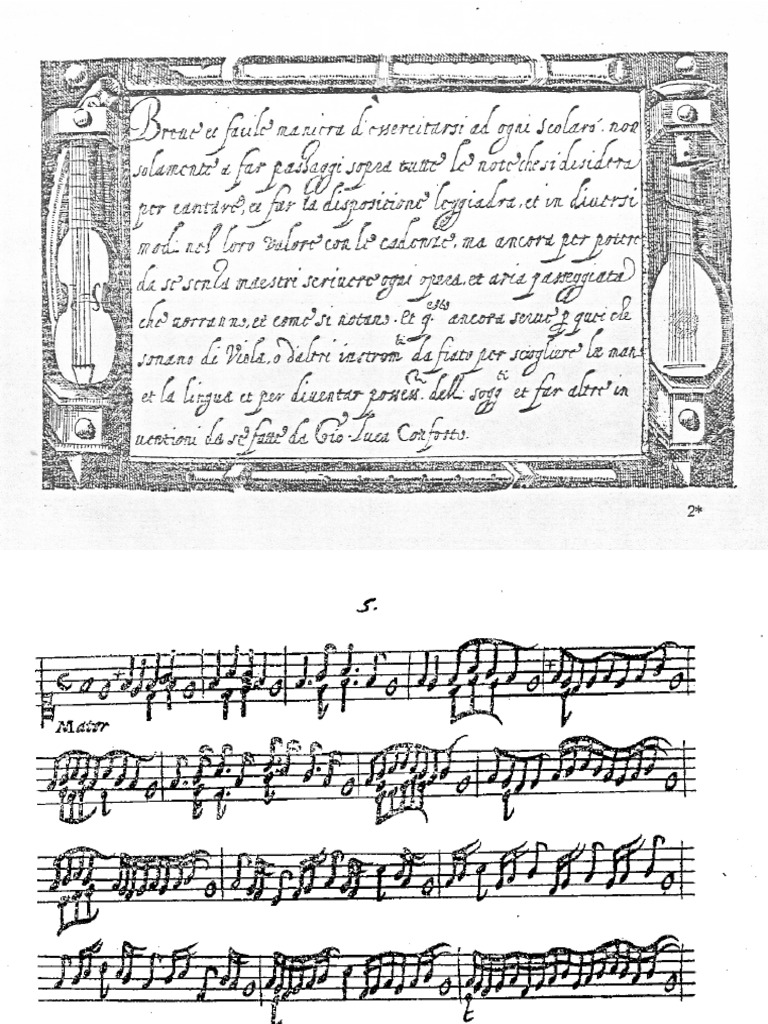 Breue et facile maniera d'essercitarsi ad ogni scolaro. non
solamente a far passaggi sopra tutte le note che si disidera
per cantare, et far la dispositione leggiadra, et in diuersi
modi nel loro valore con le cadenze, ma ancora per potere
da se senza maestri scriuere ogni opera, et aria passeggiata
che vorranno, et come si notano. Et qsto ancora serue p quei che
sonano di Viola, o d'altri instromti da fiato per sciogliere la mano
et la lingua et per diuentar dell sogg et far altre in
uentioni da se fatte da Gio. Luca Conforto.
2*
5.
Mator